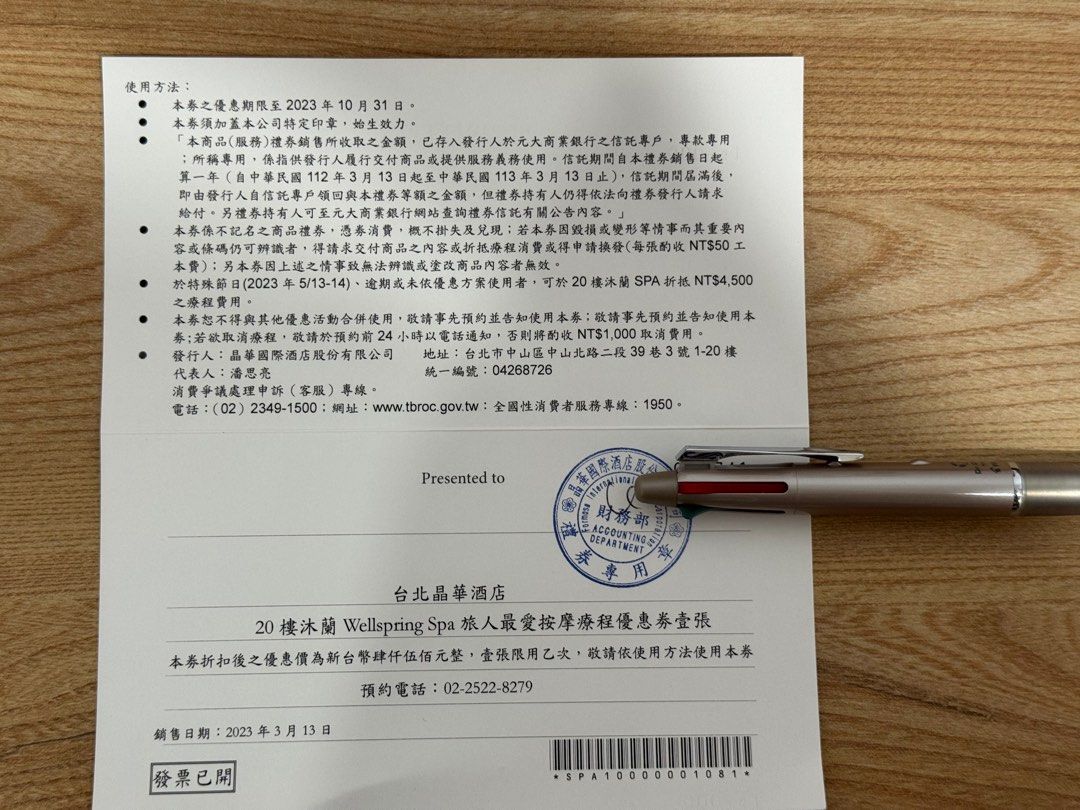 使用方法：
● 本券之優惠期限至 2023 年 10 月 31 日。
● 本券須加蓋本公司特定印章，始生效力。
● 「本商品(服務)禮券銷售所收取之金額，已存入發行人於元大商業銀行之信託專戶，專款專用
；所稱專用，係指供發行人履行交付商品或提供服務義務使用。信託期間自本禮券銷售日起
算一年（自中華民國 112 年 3 月 13 日起至中華民國 113 年 3 月 13 日止），信託期間屆滿後，
即由發行人自信託專戶領回與本禮券等額之金額，但禮券持有人仍得依法向禮券發行人請求
給付。另禮券持有人可至元大商業銀行網站查詢禮券信託有關公告內容。」
● 本券係不記名之商品禮券，憑券消費，概不掛失及兌現；若本券因毀損或變形等情事而其重要內
容或條碼仍可辨識者，得請求交付商品之內容或折抵療程消費或得申請換發(每張酌收 NT$50 工
本費)；另本券因上述之情事致無法辨識或塗改商品內容者無效。
● 於特殊節日(2023 年 5/13-14)、逾期或未依優惠方案使用者，可於 20 樓沐蘭 SPA 折抵 NT$4,500
之療程費用。
● 本券恕不得與其他優惠活動合併使用，敬請事先預約並告知使用本券；敬請事先預約並告知使用本
券;若欲取消療程，敬請於預約前 24 小時以電話通知，否則將酌收 NT$1,000 取消費用。
● 發行人：晶華國際酒店股份有限公司 地址：台北市中山區中山北路二段 39 巷 3 號 1-20 樓
代表人：潘思亮 統一編號：04268726
消費爭議處理申訴（客服）專線。
電話：(02) 2349-1500；網址：www.tbroc.gov.tw：全國性消費者服務專線：1950。
Presented to
晶華國際酒店股份
Formosa International Corporation
財務部
ACCOUNTING
DEPARTMENT
禮券專用章
台北晶華酒店
20 樓沐蘭 Wellspring Spa 旅人最愛按摩療程優惠券壹張
本券折扣後之優惠價為新台幣肆仟伍佰元整，壹張限用乙次，敬請依使用方法使用本券
預約電話：02-2522-8279
銷售日期：2023 年 3 月 13 日
發票已開
*SPA10000001081*